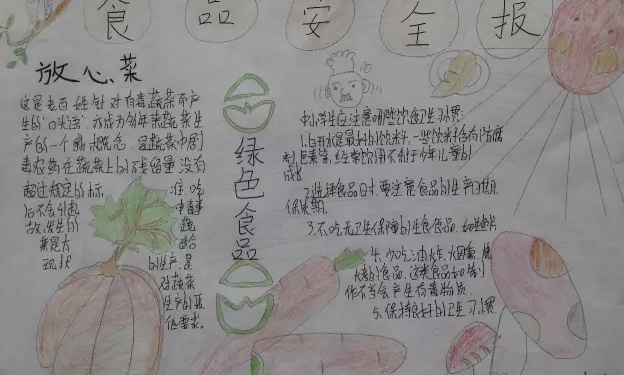 食品安全报
放心菜
这是老百姓针对有毒蔬菜而产
生的"口头语",亦成为多年来蔬菜生
产的一个新概念,是蔬菜中剧
毒农药在蔬菜上的残留量没有
超过规定的标准,吃
后不会引起中毒事
故,发生的蔬
菜是大
现状的生产,是
蔬菜
生产的最
低需求。
绿色食品
中小学生应注意哪些饮食卫生习惯:
1.白开水是最好的饮料,一些饮料含有防腐
剂、色素等,经常饮用不利于少年儿童的
成长
2.选择食品时要注意食品的生产日期、
保质期。
3.不吃无卫生保障的生食食品,如生鱼片
4.少吃油炸、烟熏、烧
烤的食品,这类食品如制
作不当会产生有毒物质
5.保持良好的卫生习惯